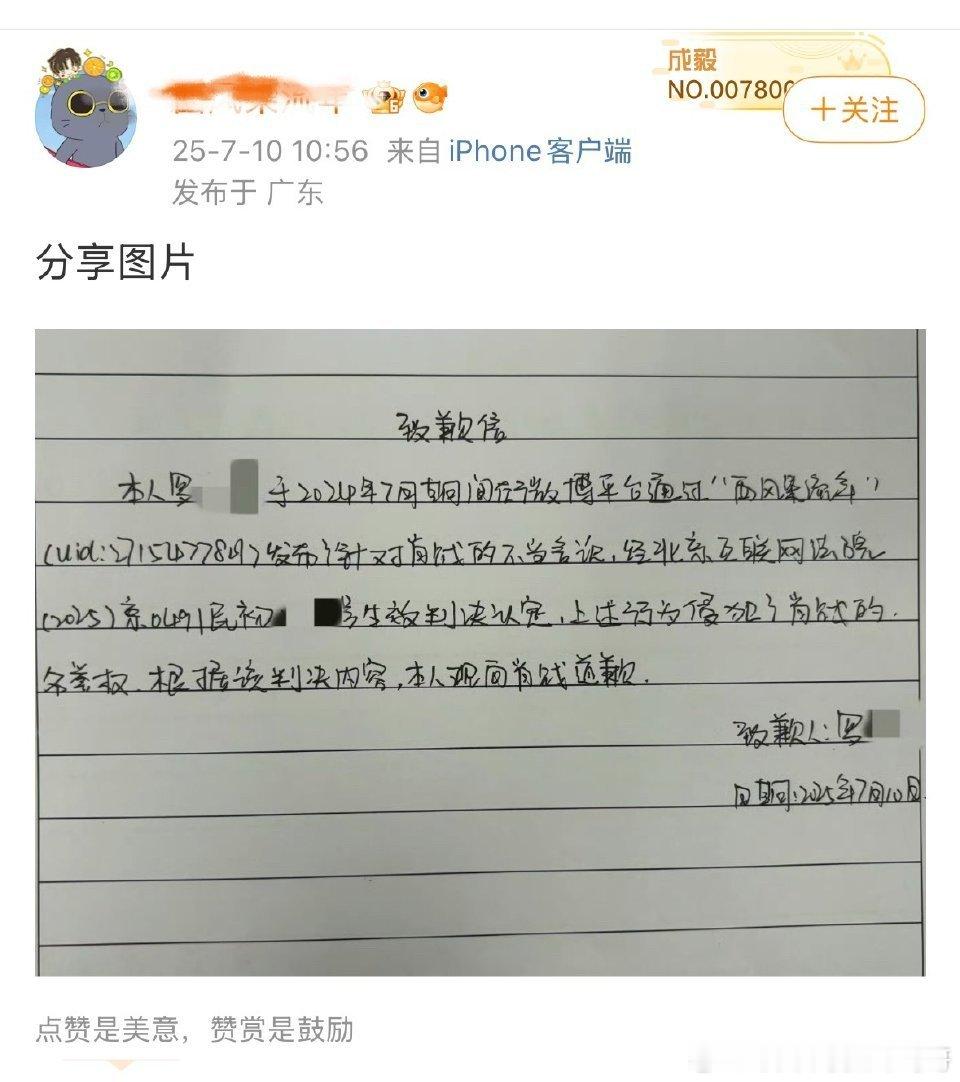 成毅
NO.007800
+关注
25-7-10 10:56 来自 iPhone客户端
发布于 广东
分享图片
致歉信
本人罗 于2024年7月期间在微博平台通过“西风果流年”
(uid:2715477849)发布了针对肖战的不当言论,经北京互联网法院
(2025)京0491民初 号生效判决认定,上述行为侵犯了肖战的
名誉权.根据该判决内容,本人现向肖战道歉.
致歉人:罗
日期:2025年7月10日.
点赞是美意,赞赏是鼓励